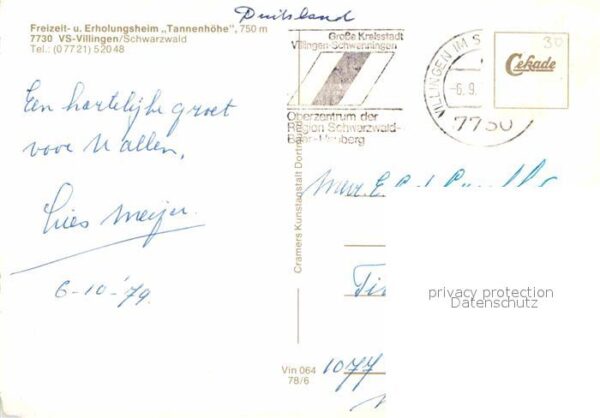 Duitsland
Freizeit- u. Erholungsheim „Tannenhöhe", 750 m
7730 VS-Villingen/Schwarzwald
Tel.: (07721) 52048
Een hartelijke groet
voor U allen,
Lies Meijer.
6-10-'79.
Große Kreisstadt
Villingen-Schwenningen
Oberzentrum der
Region Schwarzwald-
Baar-Heuberg
VILLINGEN IM S
-6.9.
7730
30
Cekade
Cramers Kunstanstalt Dortmund
Mevr. E
privacy protection
Datenschutz
Vin 064
78/6
1077